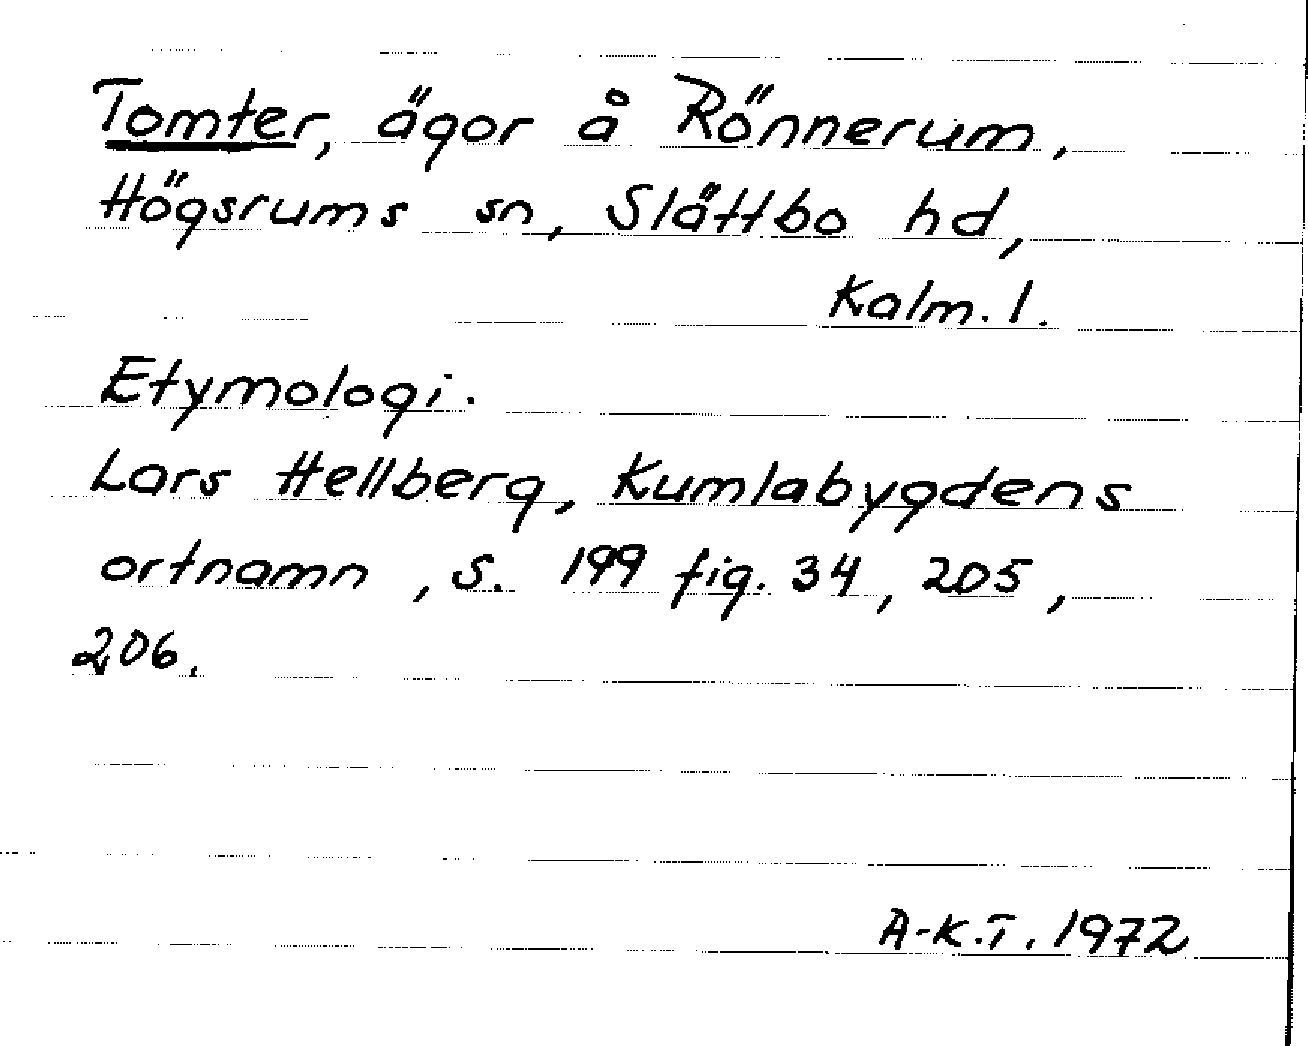 Tomter, ägor å Rönnerum,
Högsrums sn, Slättbo hd,
Kalm. l.
Etymologi.
Lars Hellberg, Kumlabygdens
ortnamn, s. 199 fig. 34, 205,
206.
A-K.T. 1972